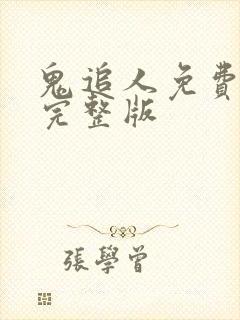 鬼追人免費
完整版
張學曾